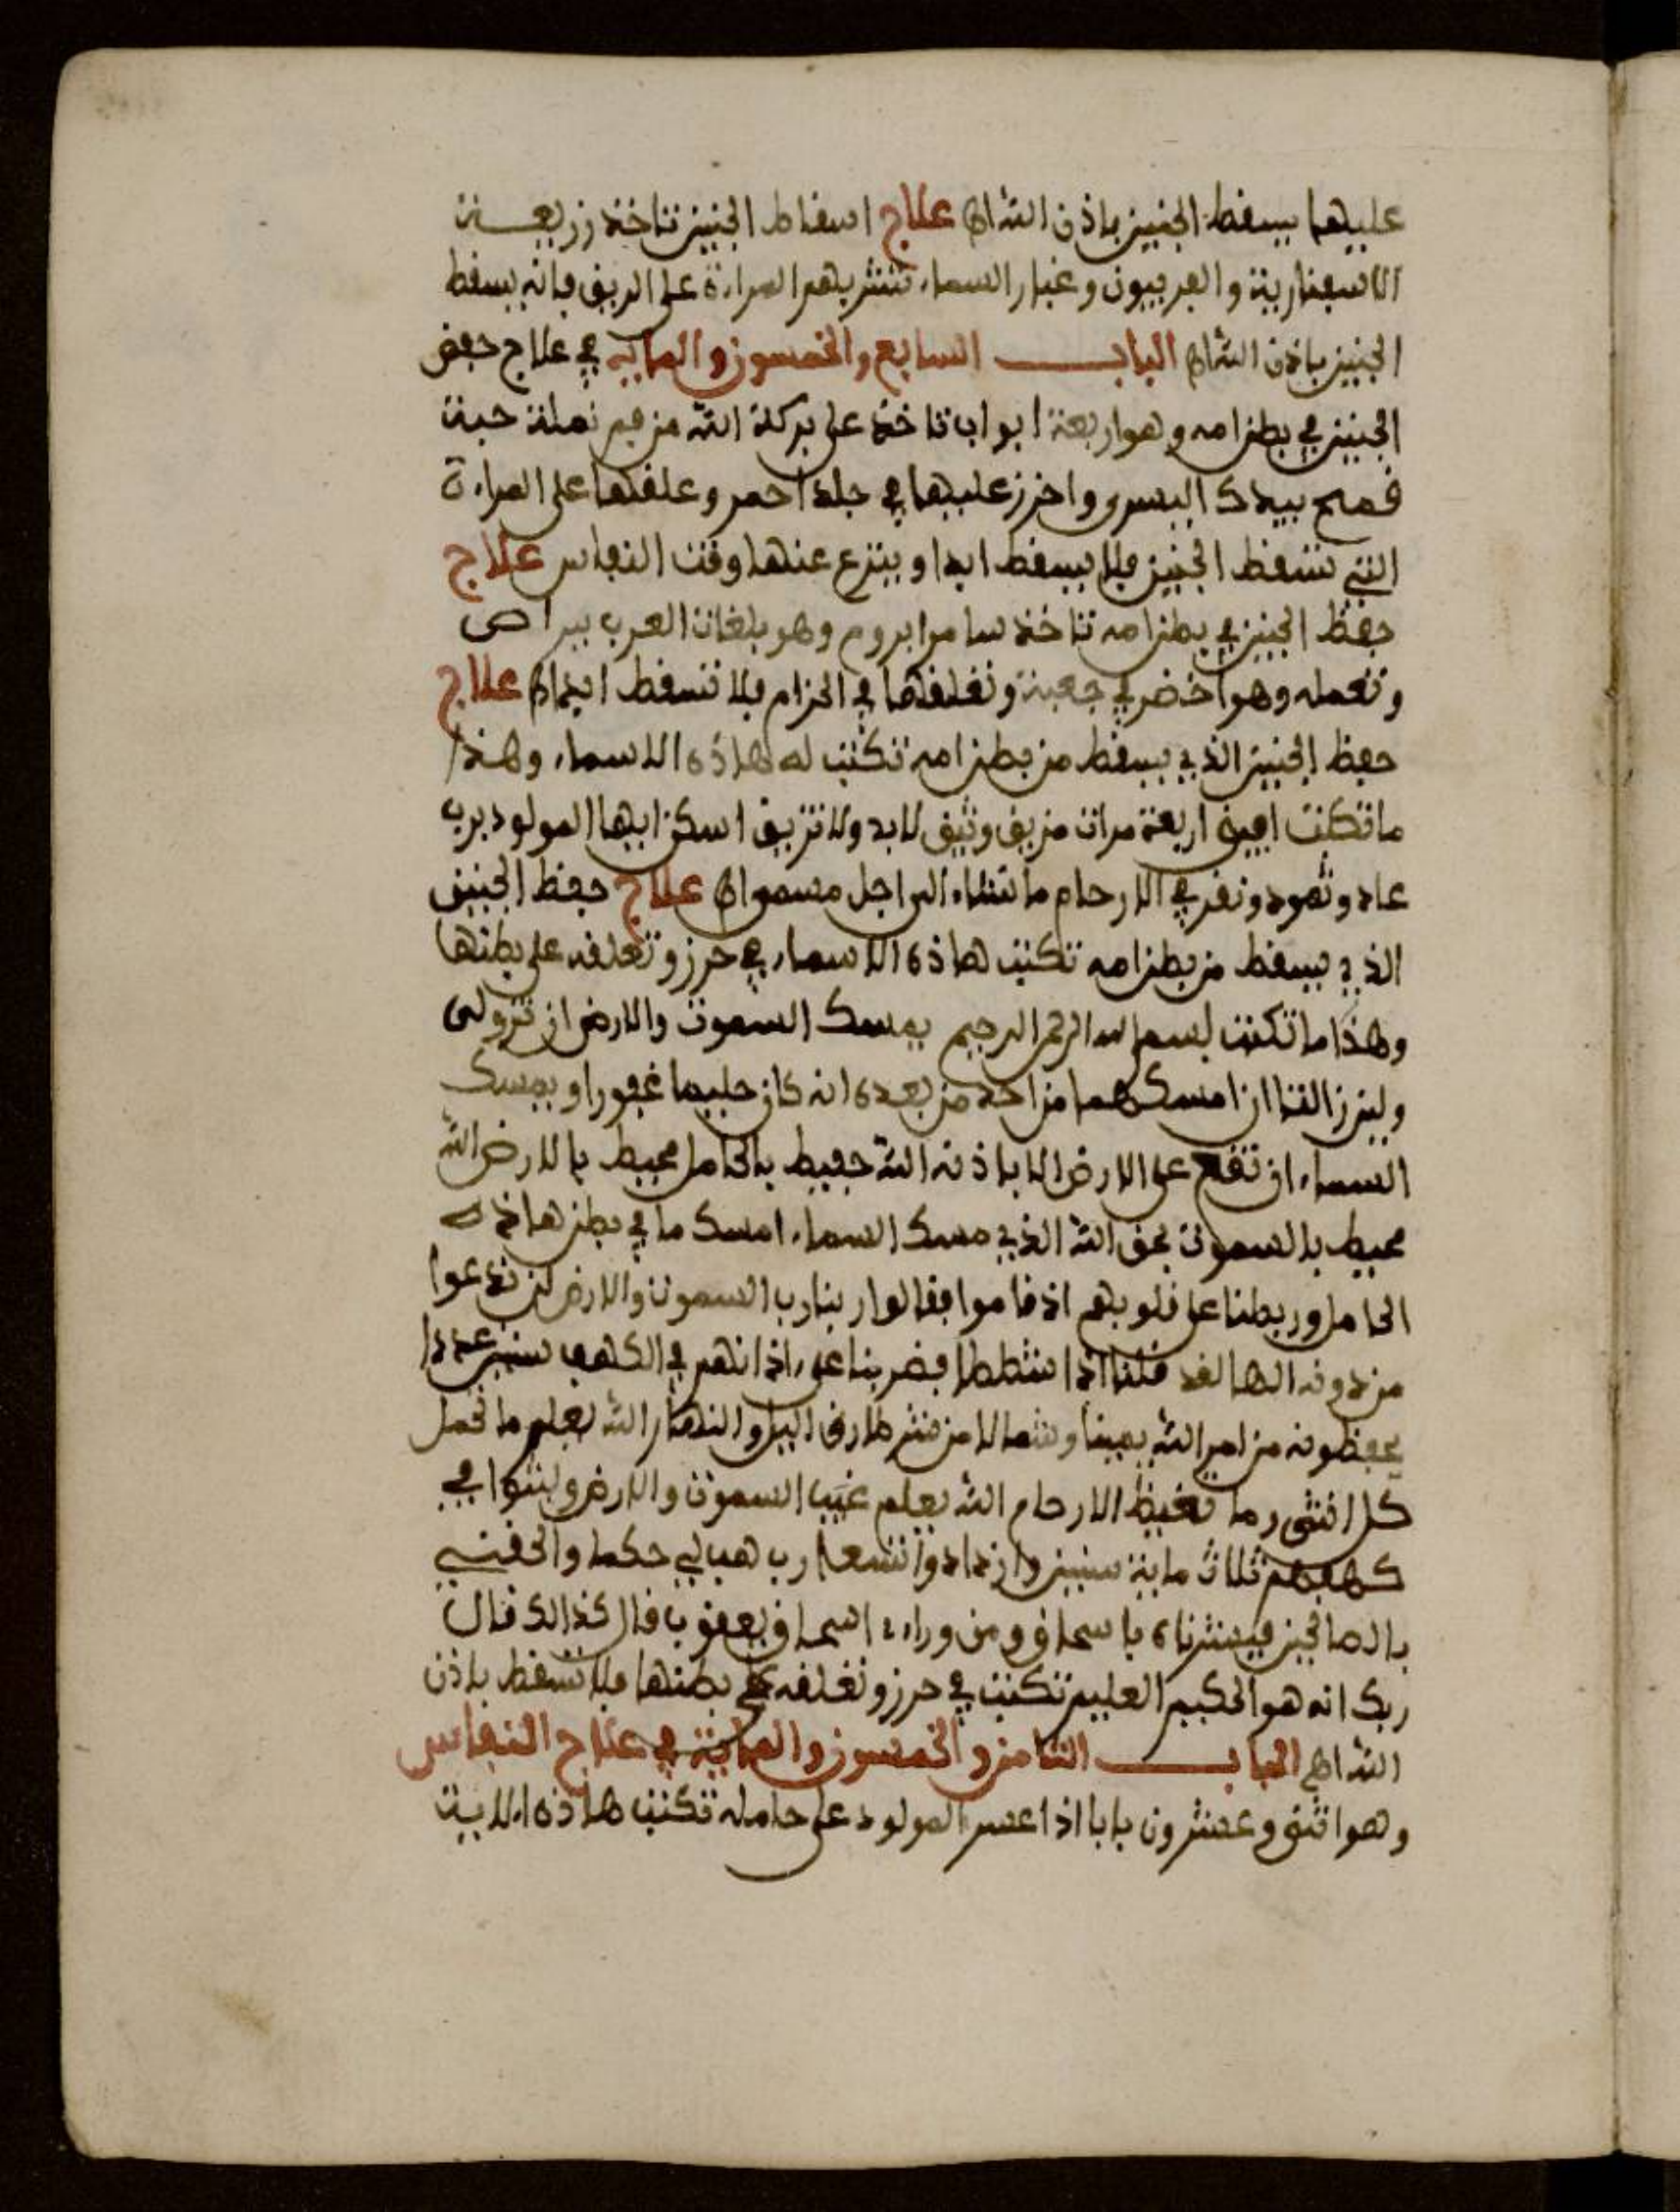 عليها يسقط الجنين باذن الله اﻫ علاج اسقاط الجنين تاخذ زريعـــة
الاسفنارية والفربيون وغبار السماء تشربهم المراءة على الريق فانه يسقط
الجنين باذن الله اﻫ البابـــــ السابع والخمسون والماية في علاج حفض
الجنين في بطن امه وهو اربعة ابواب تاخذ على بركة الله من فم نملة حبة
قمح بيدك اليسرى واخرز عليها في جلد احمر وعلقها على المراءة
التي تسقط الجنين فلا يسقط ابدا وينزع عنها وقت النفاس علاج
حفظ الجنين في بطن امه تاخذ سامرابروم وهو بلغات العرب ببراص
وتعمله وهو اخضر في جعبة وتعلقها في الحزام فلا تسقط ابدا اﻫ علاج
حفظ الجنين الذي يسقط من بطن امه تكتب له هاذه الاسماء وهذا
ما تكتب اربعة مرات ولا اسكن ايها المولود برب
عاد وثمود ونقر في الارحام ما نشاء الى اجل مسمى اﻫ علاج حفظ الجنين
الذي يسقط من بطن امه تكتب هاذه الاسماء في حرز وتعلقه على بطنها
وهذا ما تكتب بسم الله الرحمن الرحيم يمسك السموت والارض ان تزولى
ولين زالتا ان امسكهما من احد من بعده انه كان حليما غفورا ويمسك
السماء ان تقع على الارض الا باذنه الله حفيط بالحامل محيط بالارض الله
محيط بالسموت بحق الله الذي مسك السماء امسك ما في بطن هاذه
الحامل وربطنا على قلوبهم اذ قاموا فقالوا ربنا رب السموت والارض لن ندعوا
من دونه الها لقد قلنا اذا شططا فضربنا على اذانهم في الكهف سنين عددا
يحفظونه من امر الله يمينا وشمالا من شر طارق اليل والنهار الله يعلم ما تحمل
كل انثى وما تغيظ الارحام الله يعلم غيب السموت والارض ولبثوا في
كهفهم ثلاث ماية سنين وازدادوا تسعا رب هب لي حكما والحقني
بالصالحين فبشرناه باسحاق ومن وراء اسحاق يعقوب قال كذالك قال
ربك انه هو الحكيم العليم تكتب في حرز وتعلقه على بطنها فلا تسقط باذن
الله اﻫ البابـــــ الثامن والخمسون والماية في علاج النفاس
وهو اثنى وعشرون بابا اذا عسر المولود على حامله تكتب هاذه الاية